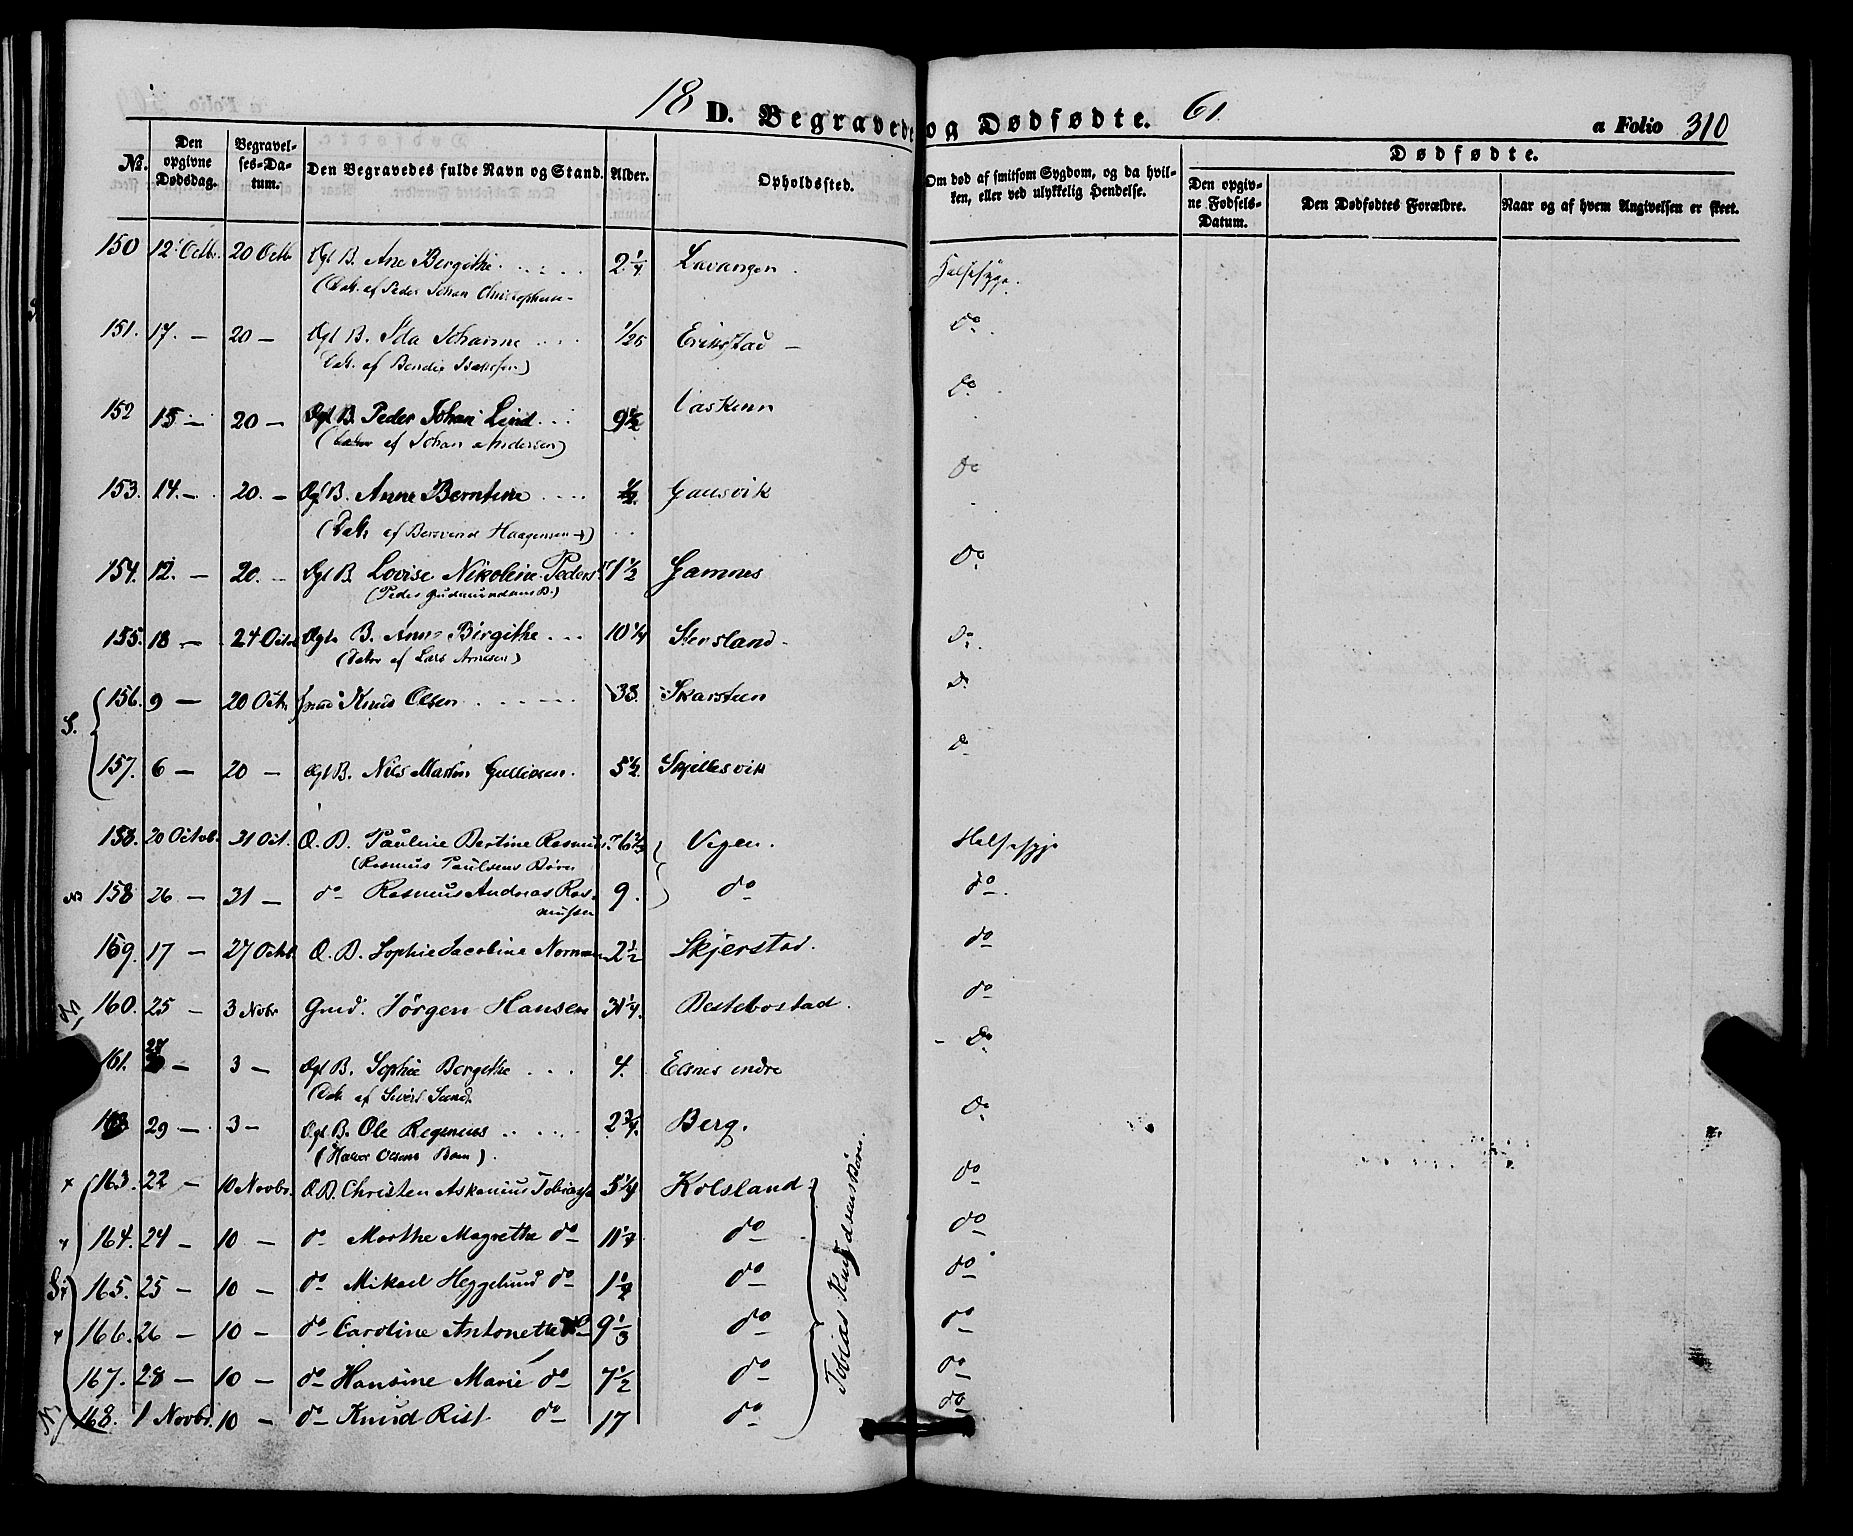 18 D. Begravede og Dødfødte. 61. a Folio 310
No. Den opgivne Dødsdag. Begravelses-Datum. Den Begravedes fulde Navn og Stand. Alder. Opholdssted. Om død af smitsom Sygdom, og da hvilken, eller ved ulykkelig Hendelse. Dødfødte.
Den opgivne Fødsels-Datum. Den Dødfødtes Forældre. Naar og af hvem Angivelsen er skeet.
150 12. Octb. 20 Octb Ægt B. Ane Bergithe 2 1/4 Lavangen. Halssyge.
(Dat. af Peder Johan Christophers-
151. 17. — 20 — Ægt B. Ida Johanne 1/26 Erikstad — Do.
Dat. af Bendix Isaksen)
152 15 — 20 — Ægt B. Peder Johan Lind 9 1/2 Do.
( af Johan Andersen)
153. 14. — 20. — Ægt B. Anne Berntine 1/2. Gausvik Do
(Datr af Bersvend Haagensen)
154. 12. — 20. — Ægt B. Lovise Nikoline Peders 1 1/2 Gamnes Do.
(Peder Gudmundsens B.)
155. 18 — 24 Octb Ægte B. Anne Birgithe 10 1/4 Storsland — Do.
(Datter af Lars Arnesen)
S. 156. 9 — 20 Octb. Knud Olsen 38. Skarsteen Do.
157. 6 — 20 — Ægt B. Nils Martin 5 1/2. Skjellesvik Do
158. 20 Octobr. 31 Oct. Æ. B. Pauline Bertine Rasmus. 6 2/3 Vegen. Halssyge
(Rasmus Paulsens Børn
NB 158 26 — 31 — do Rasmus Andreas Ras- 9. do do.
mussen
159. 17 — 27 Octb. Æ. B. Sophie Jacobine Norman 2 1/2 Skjerstad. do
160. 25 — 3 Novbr Gmd. Jörgen Hansen 31 1/4. Bestebostad. do
161. 28 — 3 — Ægt B. Sophie Bergithe 4. Elgnes indre Do.
(Dat. af Sivert Sand.
29 — 3 — Ægt B. Ole Regenius 2 3/4. Berg. Do.
(Halvor Olsens Barn).
+ 163. 22 — 10 Novbr. Æ B. Christen Askanius Tobias 5 1/4 Kolsland. do
+ 164. 24 — 10 — do Marthe Magrethe do 11 do do
S+ 165. 25 — 10 — do Mikael Heggelund do 1 do do
+ 166. 26 — 10 — do Caroline Antonette do 9 1/3 do do
167. 28 — 10 — do Hansine Marie do 7 1/2 do do
168. 1 Novbr. 10 — do Knud Rist do 17 do do
Tobias Knudsens Børn.